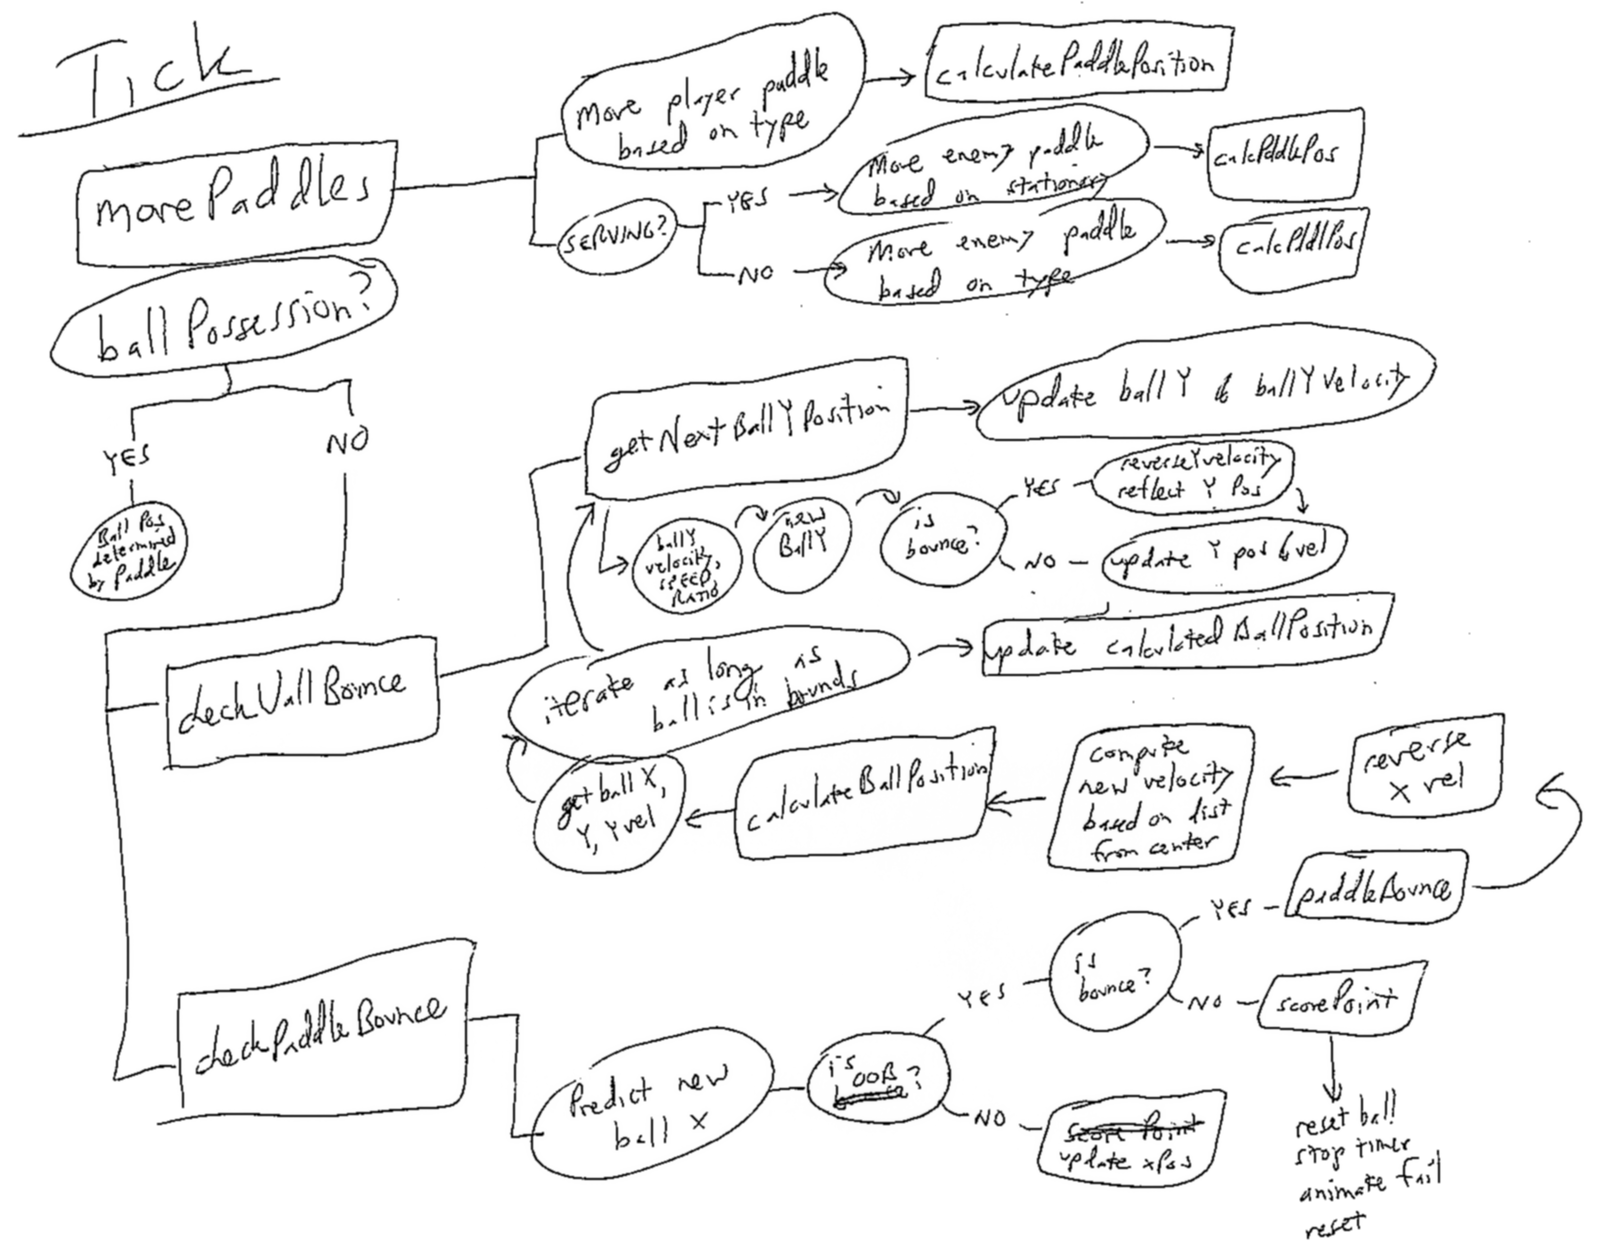 Tick
movePaddles
move player paddle
based on type
calculatePaddlePosition
SERVING?
YES
Move enemy paddle
based on stationery
calcPddlePos
NO
Move enemy paddle
based on type
calcPddlPos
ballPossession?
YES
NO
Ball Pos
determined
by Paddle
checkWallBounce
getNextBallYPosition
update ballY & ballYvelocity
ballY
velocity,
SPEED,
RATIO
new
BallY
is
bounce?
YES
reverseYvelocity
reflect Y Pos
NO
update Y pos & vel
iterate as long as
ball is in bounds
update calculatedBallPosition
get ball X,
Y, Yvel
calculateBallPosition
compute
new velocity
based on dist
from center
reverse
x vel
paddleBounce
checkPaddleBounce
Predict new
ball X
is OOB
?
YES
is
bounce?
YES
NO
scorePoint
NO
score Point
update xPos
reset ball
stop timer
animate fail
reset